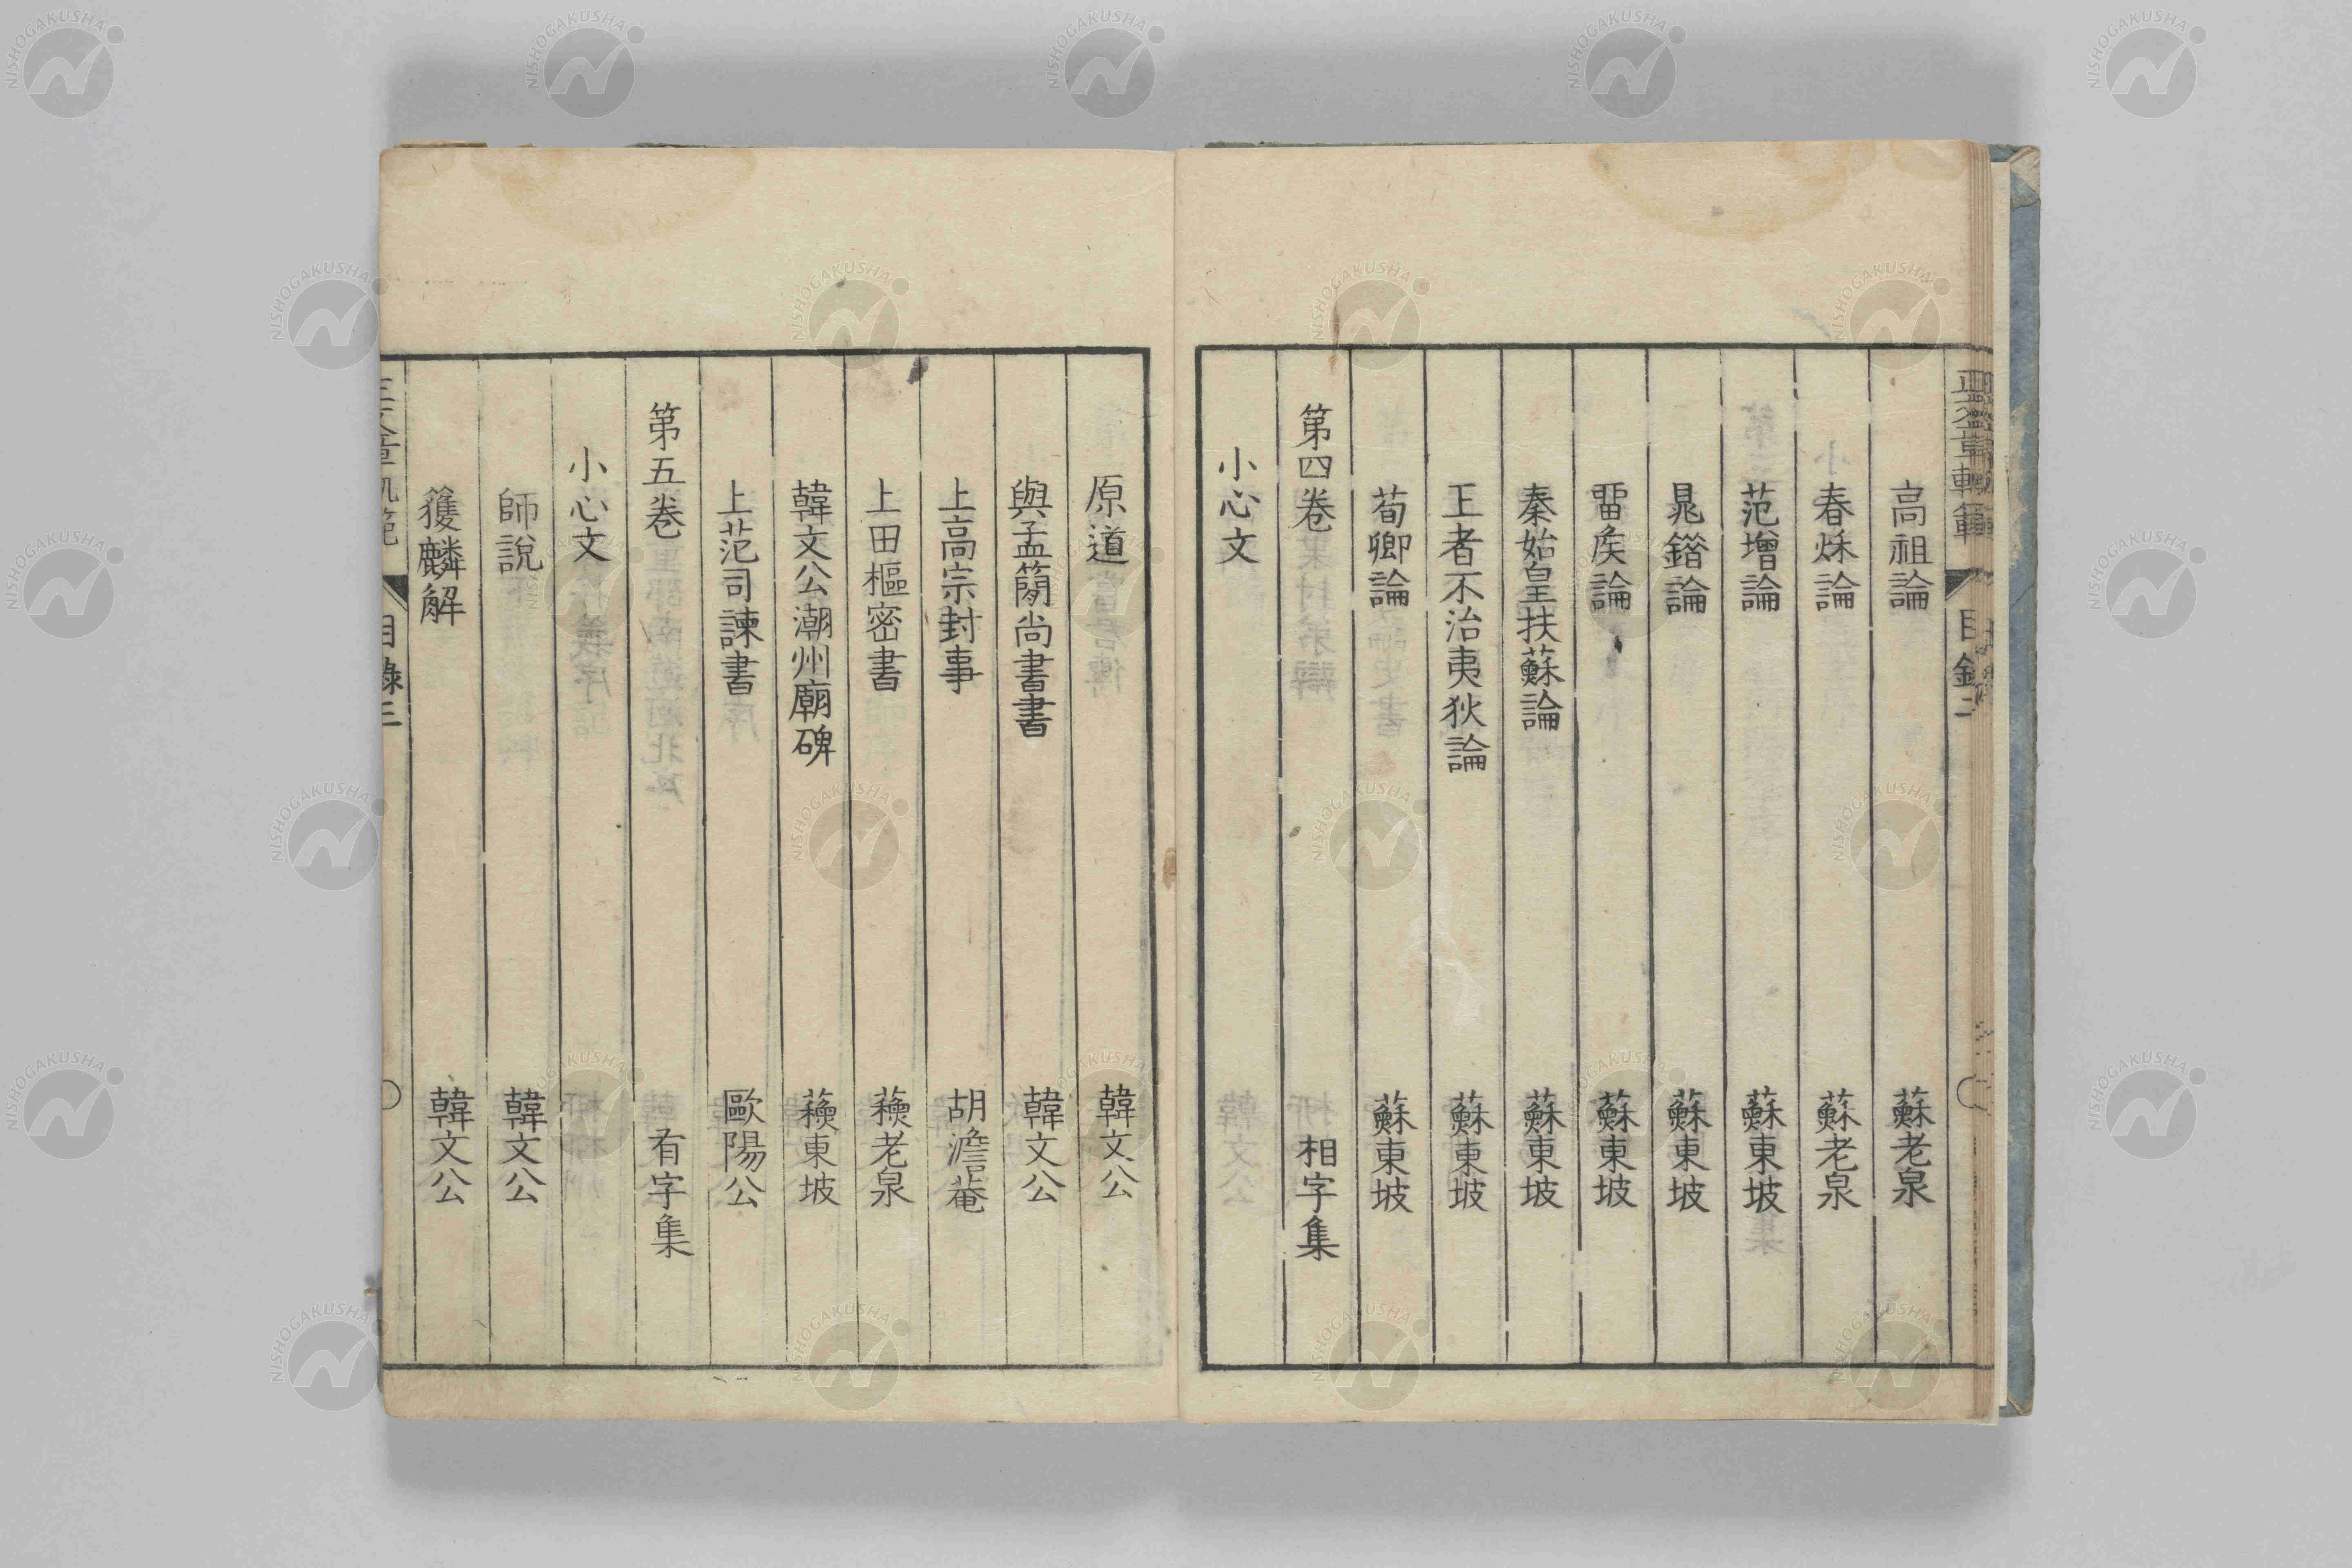 高祖論 蘇老泉
春秌論 蘇老泉
范增論 蘇東坡
晁錯論 蘇東坡
畱矦論 蘇東坡
秦始皇扶蘇論 蘇東坡
王者不治夷狄論 蘇東坡
荀卿論 蘇東坡
第四卷 相字集
小心文
原道 韓文公
與孟簡尚書書 韓文公
上高宗封事 胡澹菴
上田樞密書 蘓老泉
韓文公潮州廟碑 蘓東坡
上范司諫書 歐陽公
第五卷 有字集
小心文
師說 韓文公
獲麟解 韓文公
目錄三
NISHOGAKUSHA